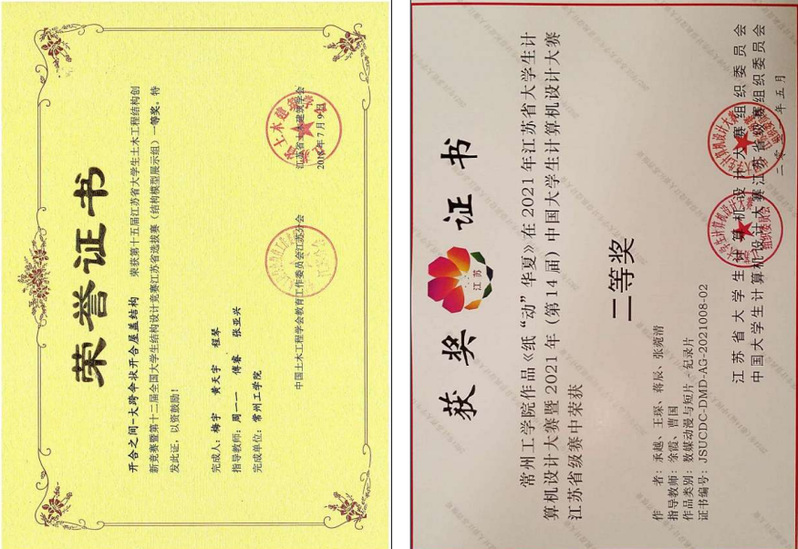 荣誉证书
开合之间-大跨伞状开合屋盖结构 荣获第十五届江苏省大学生土木工程结构创
新竞赛暨第十二届全国大学生结构设计竞赛江苏省选拔赛（结构模型展示组）一等奖，特
发此证，以资鼓励！
完成人：梅宇 黄天宇 程琴
指导教师：周一一 傅睿 张亚兴
完成单位：常州工学院
中国土木工程学会教育工作委员会江苏分会
江苏省土木建筑学会
2018年7月9日
获奖证书
江苏
常州工学院作品《纸“动”华夏》在2021年江苏省大学生计
算机设计大赛暨2021年（第14届）中国大学生计算机设计大赛
江苏省级赛中荣获
二等奖
作 者：承越、王琛、蒋辰、张菀清
指导教师：徐霞、曹国
作品类别：数媒动漫与短片-纪录片
证书编号：JSUCDC-DMD-AG-2021008-02
江苏省大学生计算机设计大赛组织委员会
中国大学生计算机设计大赛江苏省级赛组织委员会
年五月